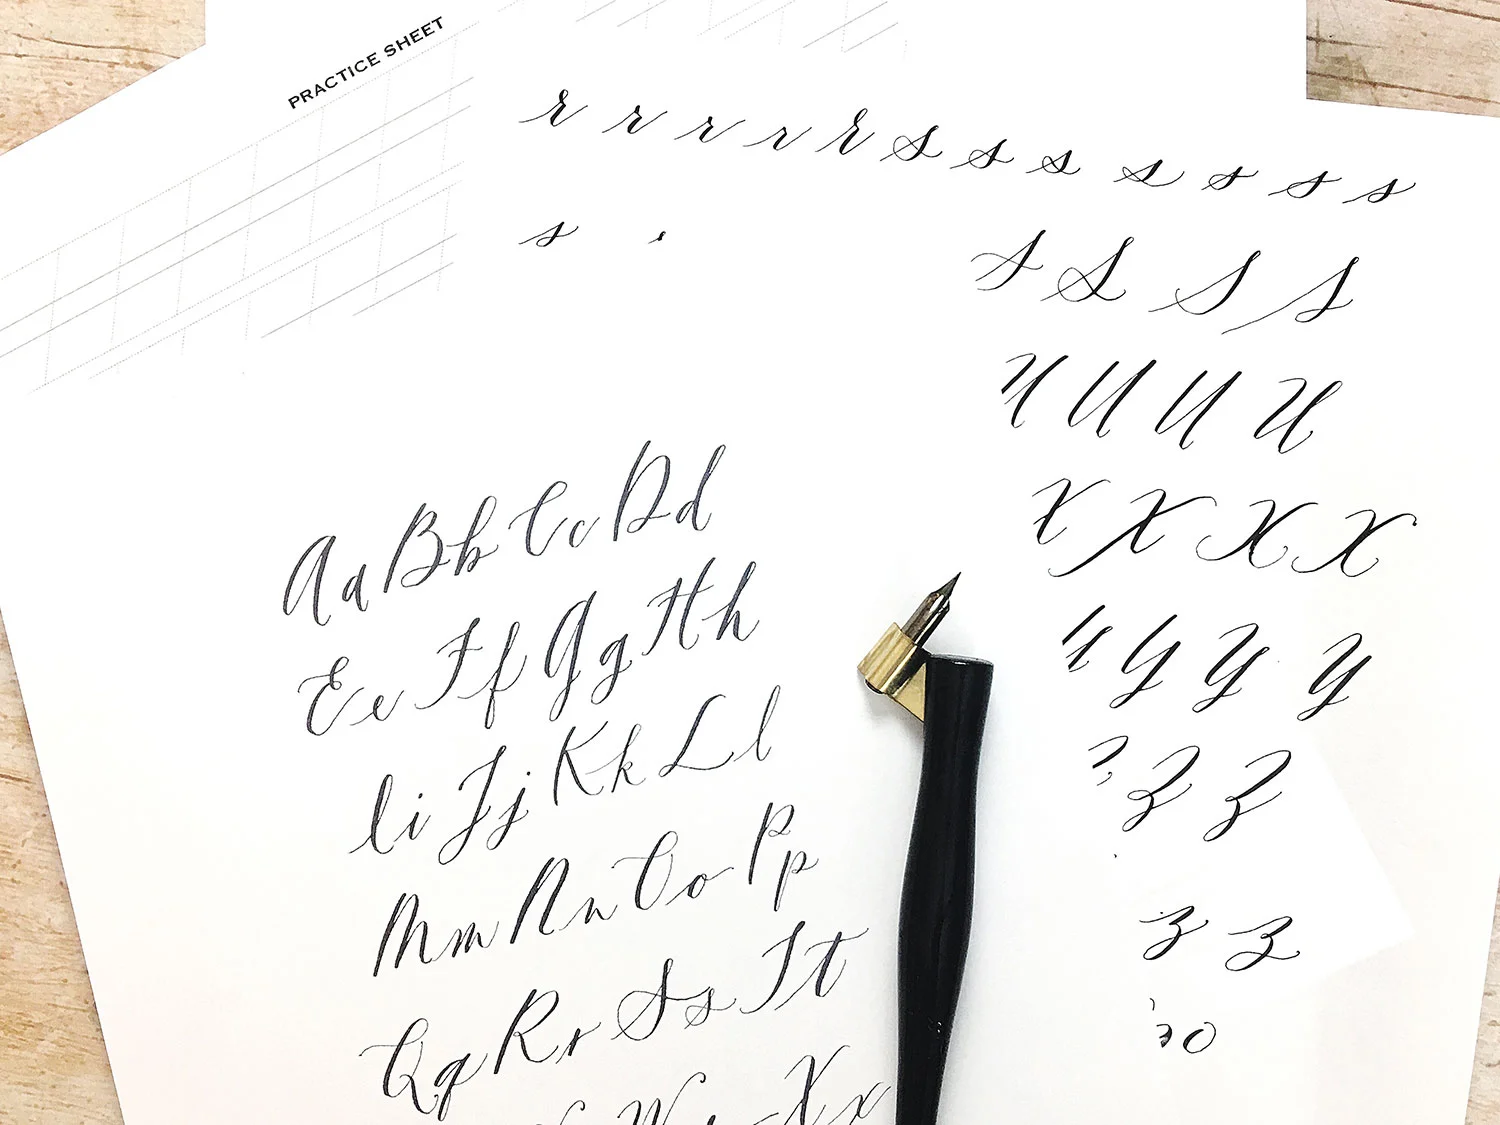 PRACTICE SHEET
r r r r r s s s s s s s
s
S S S S
U U U U
X X X X
y y y y
z z
z z
Aa Bb Cc Dd
Ee Ff Gg Hh
Ii Jj Kk Ll
Mm Nn Oo Pp
Qq Rr Ss Tt
Xx